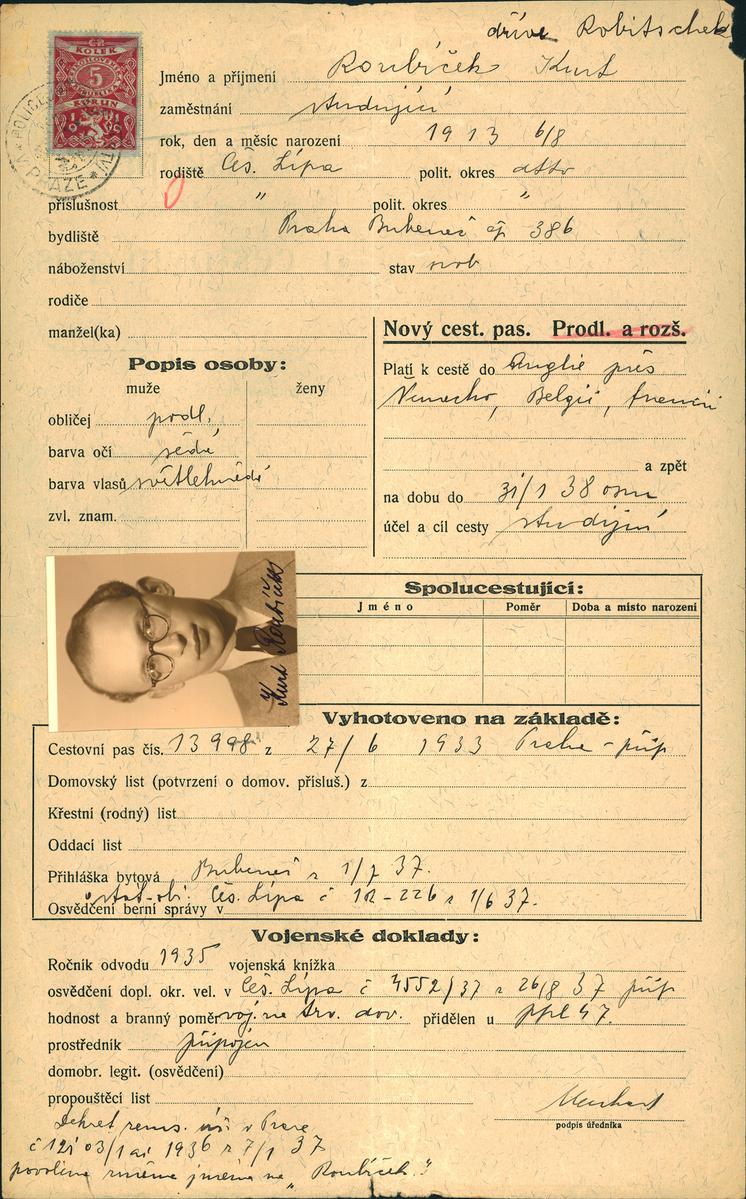 dříve Robitschek
KOLEK
5
KORUN
V PRAZE
Jméno a příjmení Roubíček Kurt
zaměstnání studující
rok, den a měsíc narození 1913 6/8
rodiště Čes. Lípa polit. okres dtto
příslušnost " polit. okres "
bydliště Praha Bubeneč čp 386
náboženství stav svob
rodiče
manžel(ka)
Popis osoby:
muže ženy
obličej podl.
barva očí šedé
barva vlasů světlehnědé
zvl. znam.
Nový cest. pas. Prodl. a rozš.
Platí k cestě do Anglie přes
Německo, Belgii, Francii
a zpět
na dobu do 31/1 38
účel a cíl cesty studijní
Kurt Roubíček
Spolucestující:
Jméno Poměr Doba a místo narození
Vyhotoveno na základě:
Cestovní pas čís. 13998 z 27/6 1933 Praha - příp
Domovský list (potvrzení o domov. přísluš.) z
Křestní (rodný) list
Oddací list
Přihláška bytová Bubeneč z 1/7 37.
Čes. Lípa č 12-226 z 1/6 37.
Osvědčení berní správy v
Vojenské doklady:
Ročník odvodu 1935 vojenská knížka
osvědčení dopl. okr. vel. v Čes. Lípa č 4552/37 z 26/8 37 příp
hodnost a branný poměr voj. na trv. dov. přidělen u
prostředník připojen
domobr. legit. (osvědčení)
propouštěcí list
podpis úředníka
Dekret zems. úř. v Praze
1936 z 7/1 37
povolena změna jména na „Roubíček."